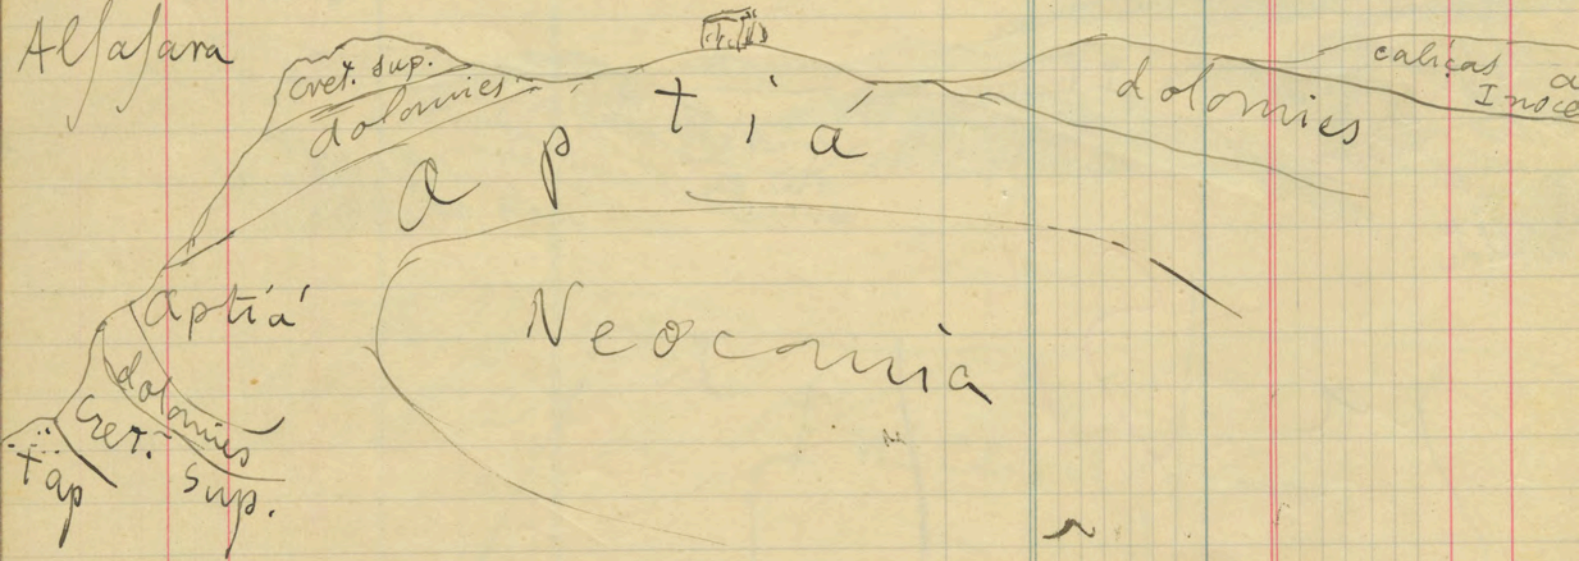 Alfafara
cret. sup.
dolomies
aptiá
dolomies
caliças a
Inoce
aptiá
Neocomiá
dolomies
Cret. sup.
tap